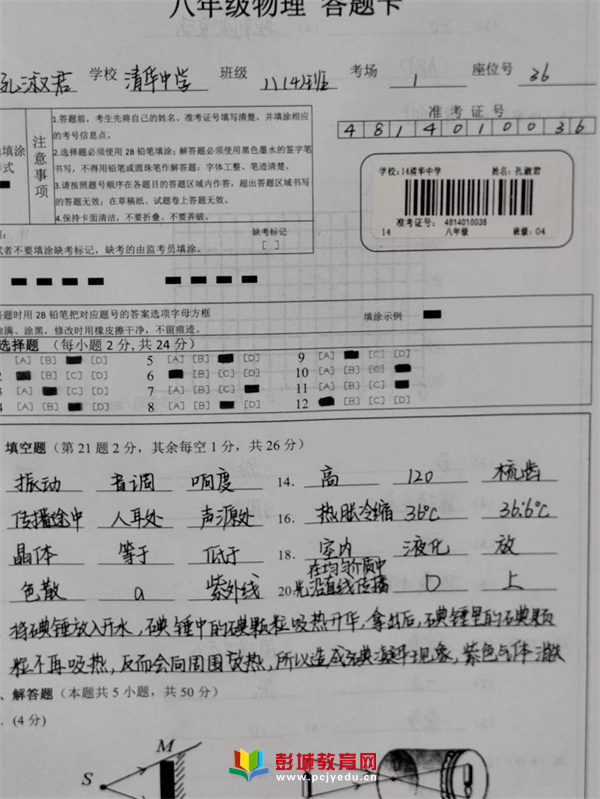 八年级物理 答题卡
孔淑君 学校 清华中学 班级 八(4)班 考场 1 座位号 36
注意事项
1.答题前，考生先将自己的姓名、准考证号填写清楚，并填涂相应
的考号信息点。
2.选择题必须使用2B铅笔填涂；解答题必须使用黑色墨水的签字笔
书写，不得用铅笔或圆珠笔作解答题；字体工整、笔迹清楚。
3.请按照题号顺序在各题目的答题区域内作答，超出答题区域书写
的答题无效；在草稿纸、试题卷上答题无效。
4.保持卡面清洁，不要折叠、不要弄破。
填涂
样式
准 考 证 号
4 8 1 4 0 1 0 0 3 6
学校：14清华中学 姓名：孔淑君
准考证号： 4814010036
14 八年级 班级：04
缺考标记
[ ]
试者不要填涂缺考标记，缺考的由监考员填涂。
答题时用2B铅笔把对应题号的答案选项字母方框
涂满、涂黑，修改时用橡皮擦干净，不留痕迹。
填涂示例
选择题 （每小题2分,共24分）
[A] [B] [D] 5 [A] [B] [D] 9 [A] [C] [D]
[B] [C] [D] 6 [B] [C] [D] 10 [A] [B] [C]
[A] [C] [D] 7 [A] [B] [C] 11 [A] [B] [C]
[A] [B] [D] 8 [A] [B] [D] 12 [B] [C] [D]
填空题（第21题2分，其余每空1分，共26分）
振动 音调 响度 14. 高 120 梳齿
传播途中 人耳处 声源处 16. 热胀冷缩 36℃ 36.6℃
晶体 等于 低于 18. 室内 液化 放
色散 a 紫外线 20 在均匀介质中光沿直线传播 D 上
将碘锤放入开水，碘锤中的碘颗粒吸热升华，拿出后，碘锤里的碘颗
粒不再吸热，反而会向周围放热，所以造成碘凝华现象，紫色气体消散
解答题（本题共5小题，共50分）
(4分)
M
S
彭城教育网
www.pcjyedu.cn